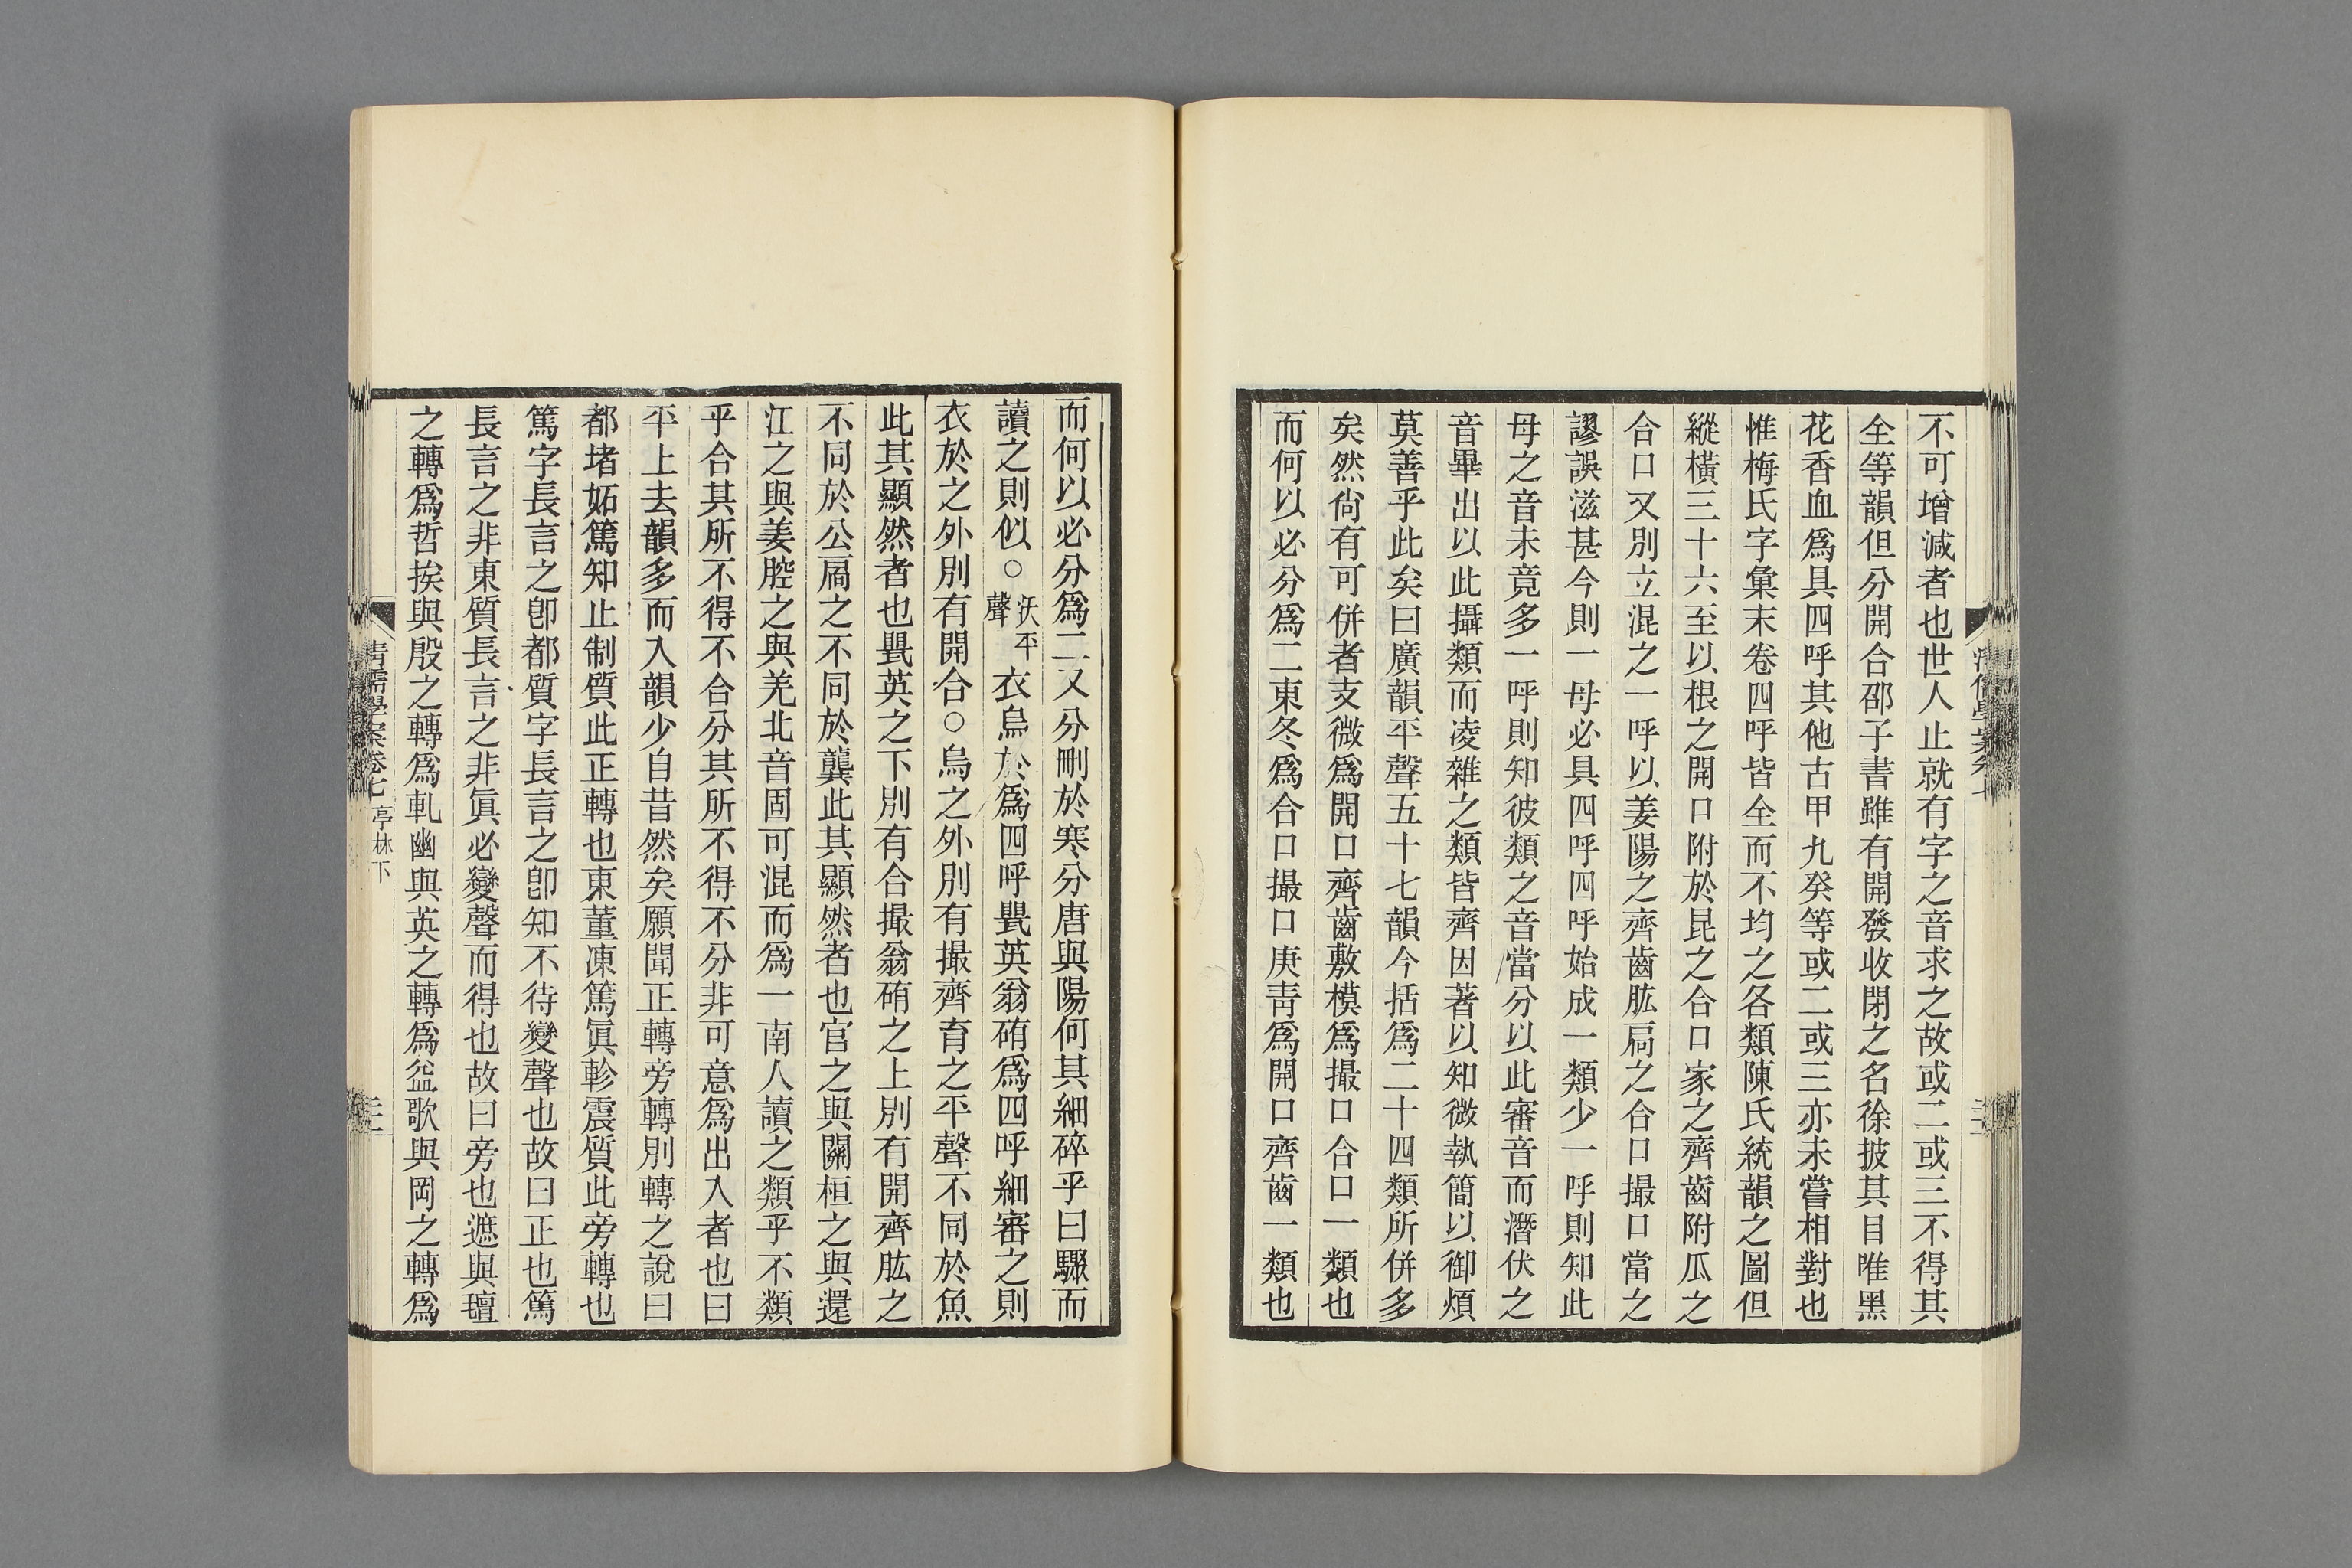 不可增減者也世人止就有字之音求之故或二或三不得其
全等韻但分開合邵子書雖有開發收閉之名徐披其目唯黑
花香血爲具四呼其他古甲九癸等或二或三亦未嘗相對也
惟梅氏字彙末卷四呼皆全而不均之各類陳氏統韻之圖但
縱橫三十六至以根之開口附於昆之合口家之齊齒附瓜之
合口又別立混之一呼以姜陽之齊齒肱扃之合口撮口當之
謬誤滋甚今則一母必具四呼四呼始成一類少一呼則知此
母之音未竟多一呼則知彼類之音當分以此審音而潛伏之
音畢出以此攝類而凌雜之類皆齊因著以知微執簡以御煩
莫善乎此矣曰廣韻平聲五十七韻今括爲二十四類所併多
矣然尙有可併者支微爲開口齊齒敷模爲撮口合口一類也
而何以必分爲二東冬爲合口撮口庚靑爲開口齊齒一類也
清儒學案卷七
而何以必分爲二又分刪於寒分唐與陽何其細碎乎曰驟而
讀之則似○𣲽平聲衣烏於爲四呼甖英翁硧爲四呼細審之則
衣於之外別有開合○烏之外別有撮齊育之平聲不同於魚
此其顯然者也甖英之下別有合撮翁硧之上別有開齊肱之
不同於公扃之不同於龔此其顯然者也官之與關桓之與還
江之與姜腔之與羌北音固可混而爲一南人讀之類乎不類
乎合其所不得不合分其所不得不分非可意爲出入者也曰
平上去韻多而入韻少自昔然矣願聞正轉旁轉別轉之說曰
都堵妬篤知止制質此正轉也東董凍篤眞軫震質此旁轉也
篤字長言之卽都質字長言之卽知不待變聲也故曰正也篤
長言之非東質長言之非眞必變聲而得也故曰旁也遮與䡀
之轉爲哲挨與殷之轉爲軋幽與英之轉爲益歌與岡之轉爲
清儒學案卷七 亭林下